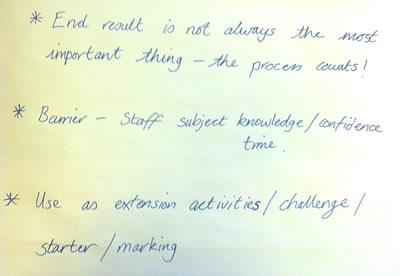 * End result is not always the most
important thing – the process counts!
* Barrier – Staff subject knowledge/confidence
time.
* Use as extension activities/challenge/
starter/marking